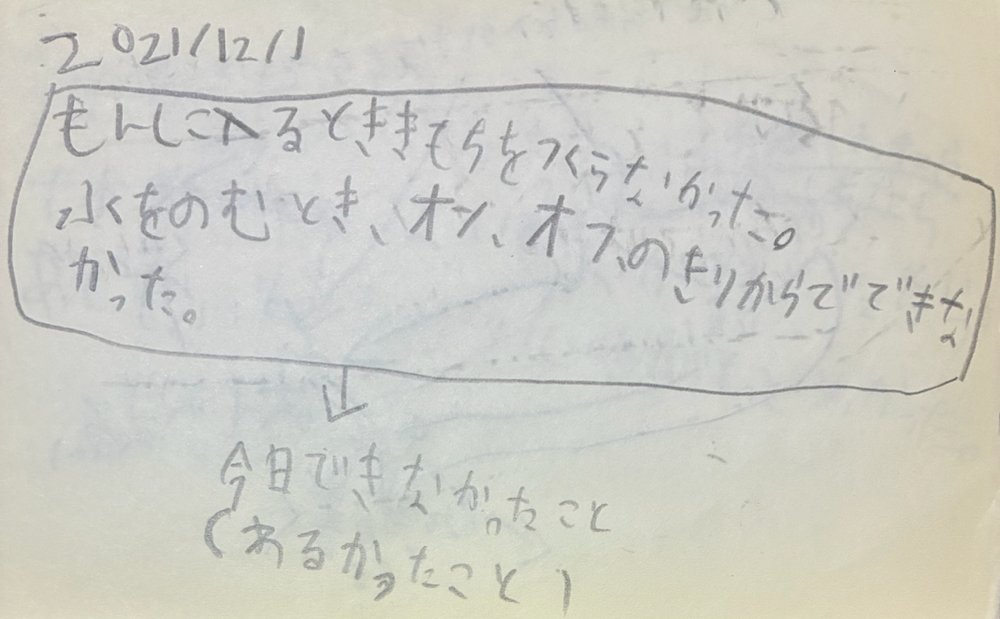 2021/12/1
もんに入るとききもちをつくらなかった。
水をのむとき、オン、オフのきりからでできな
かった。
今日できなかったこと
(あるかったこと)